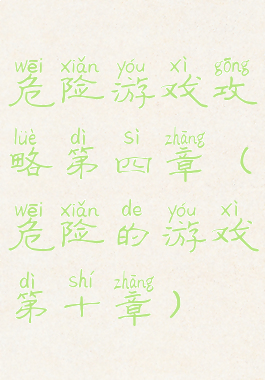 wēi xiǎn yóu xì gōng
危险游戏攻
lüè dì sì zhāng
略第四章（
wēi xiǎn de yóu xì
危险的游戏
dì shí zhāng
第十章）